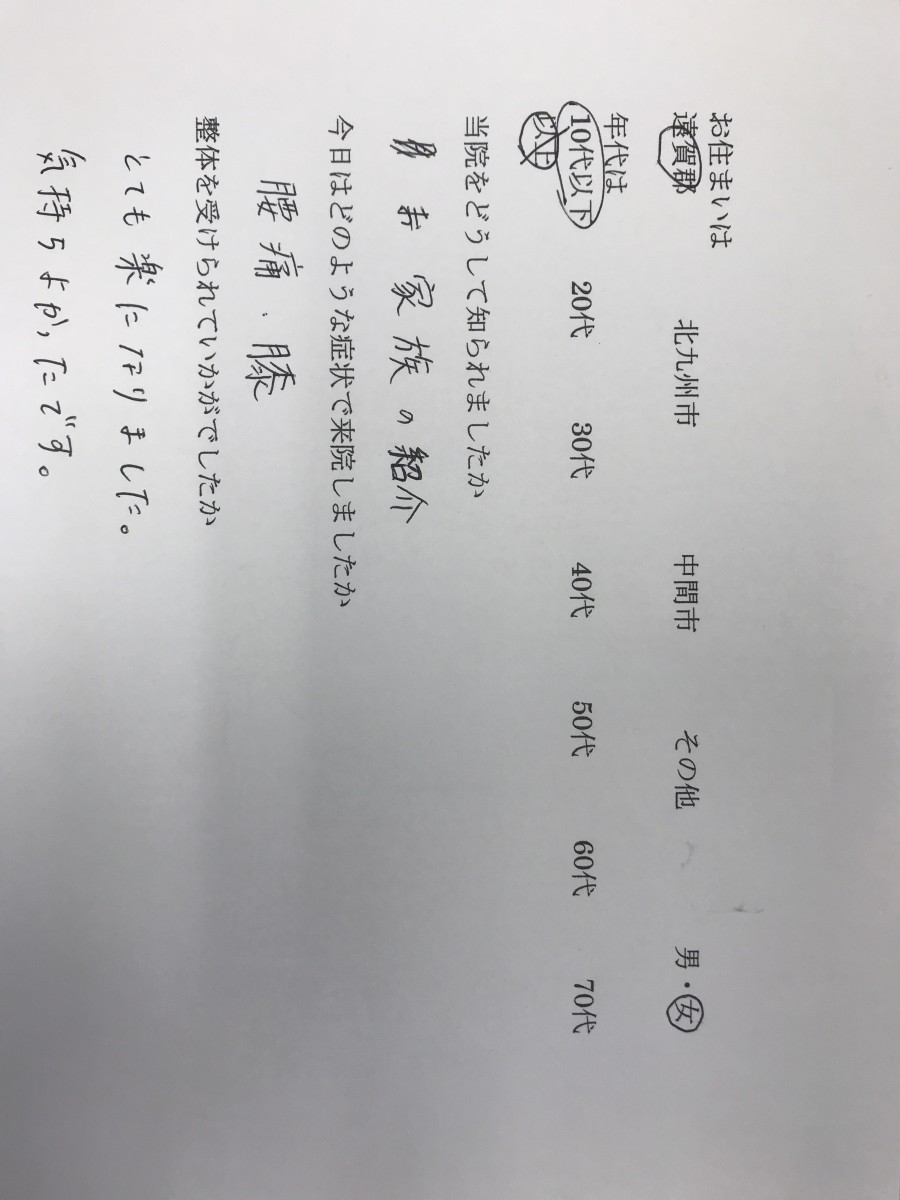 お住まいは
遠賀郡 北九州市 中間市 その他 男・女
年代は
10代以下 20代 30代 40代 50代 60代 70代
以上
当院をどうして知られましたか
お家族の紹介
今日はどのような症状で来院しましたか
腰痛、膝
整体を受けられていかがでしたか
とても楽になりました。
気持ちよかったです。